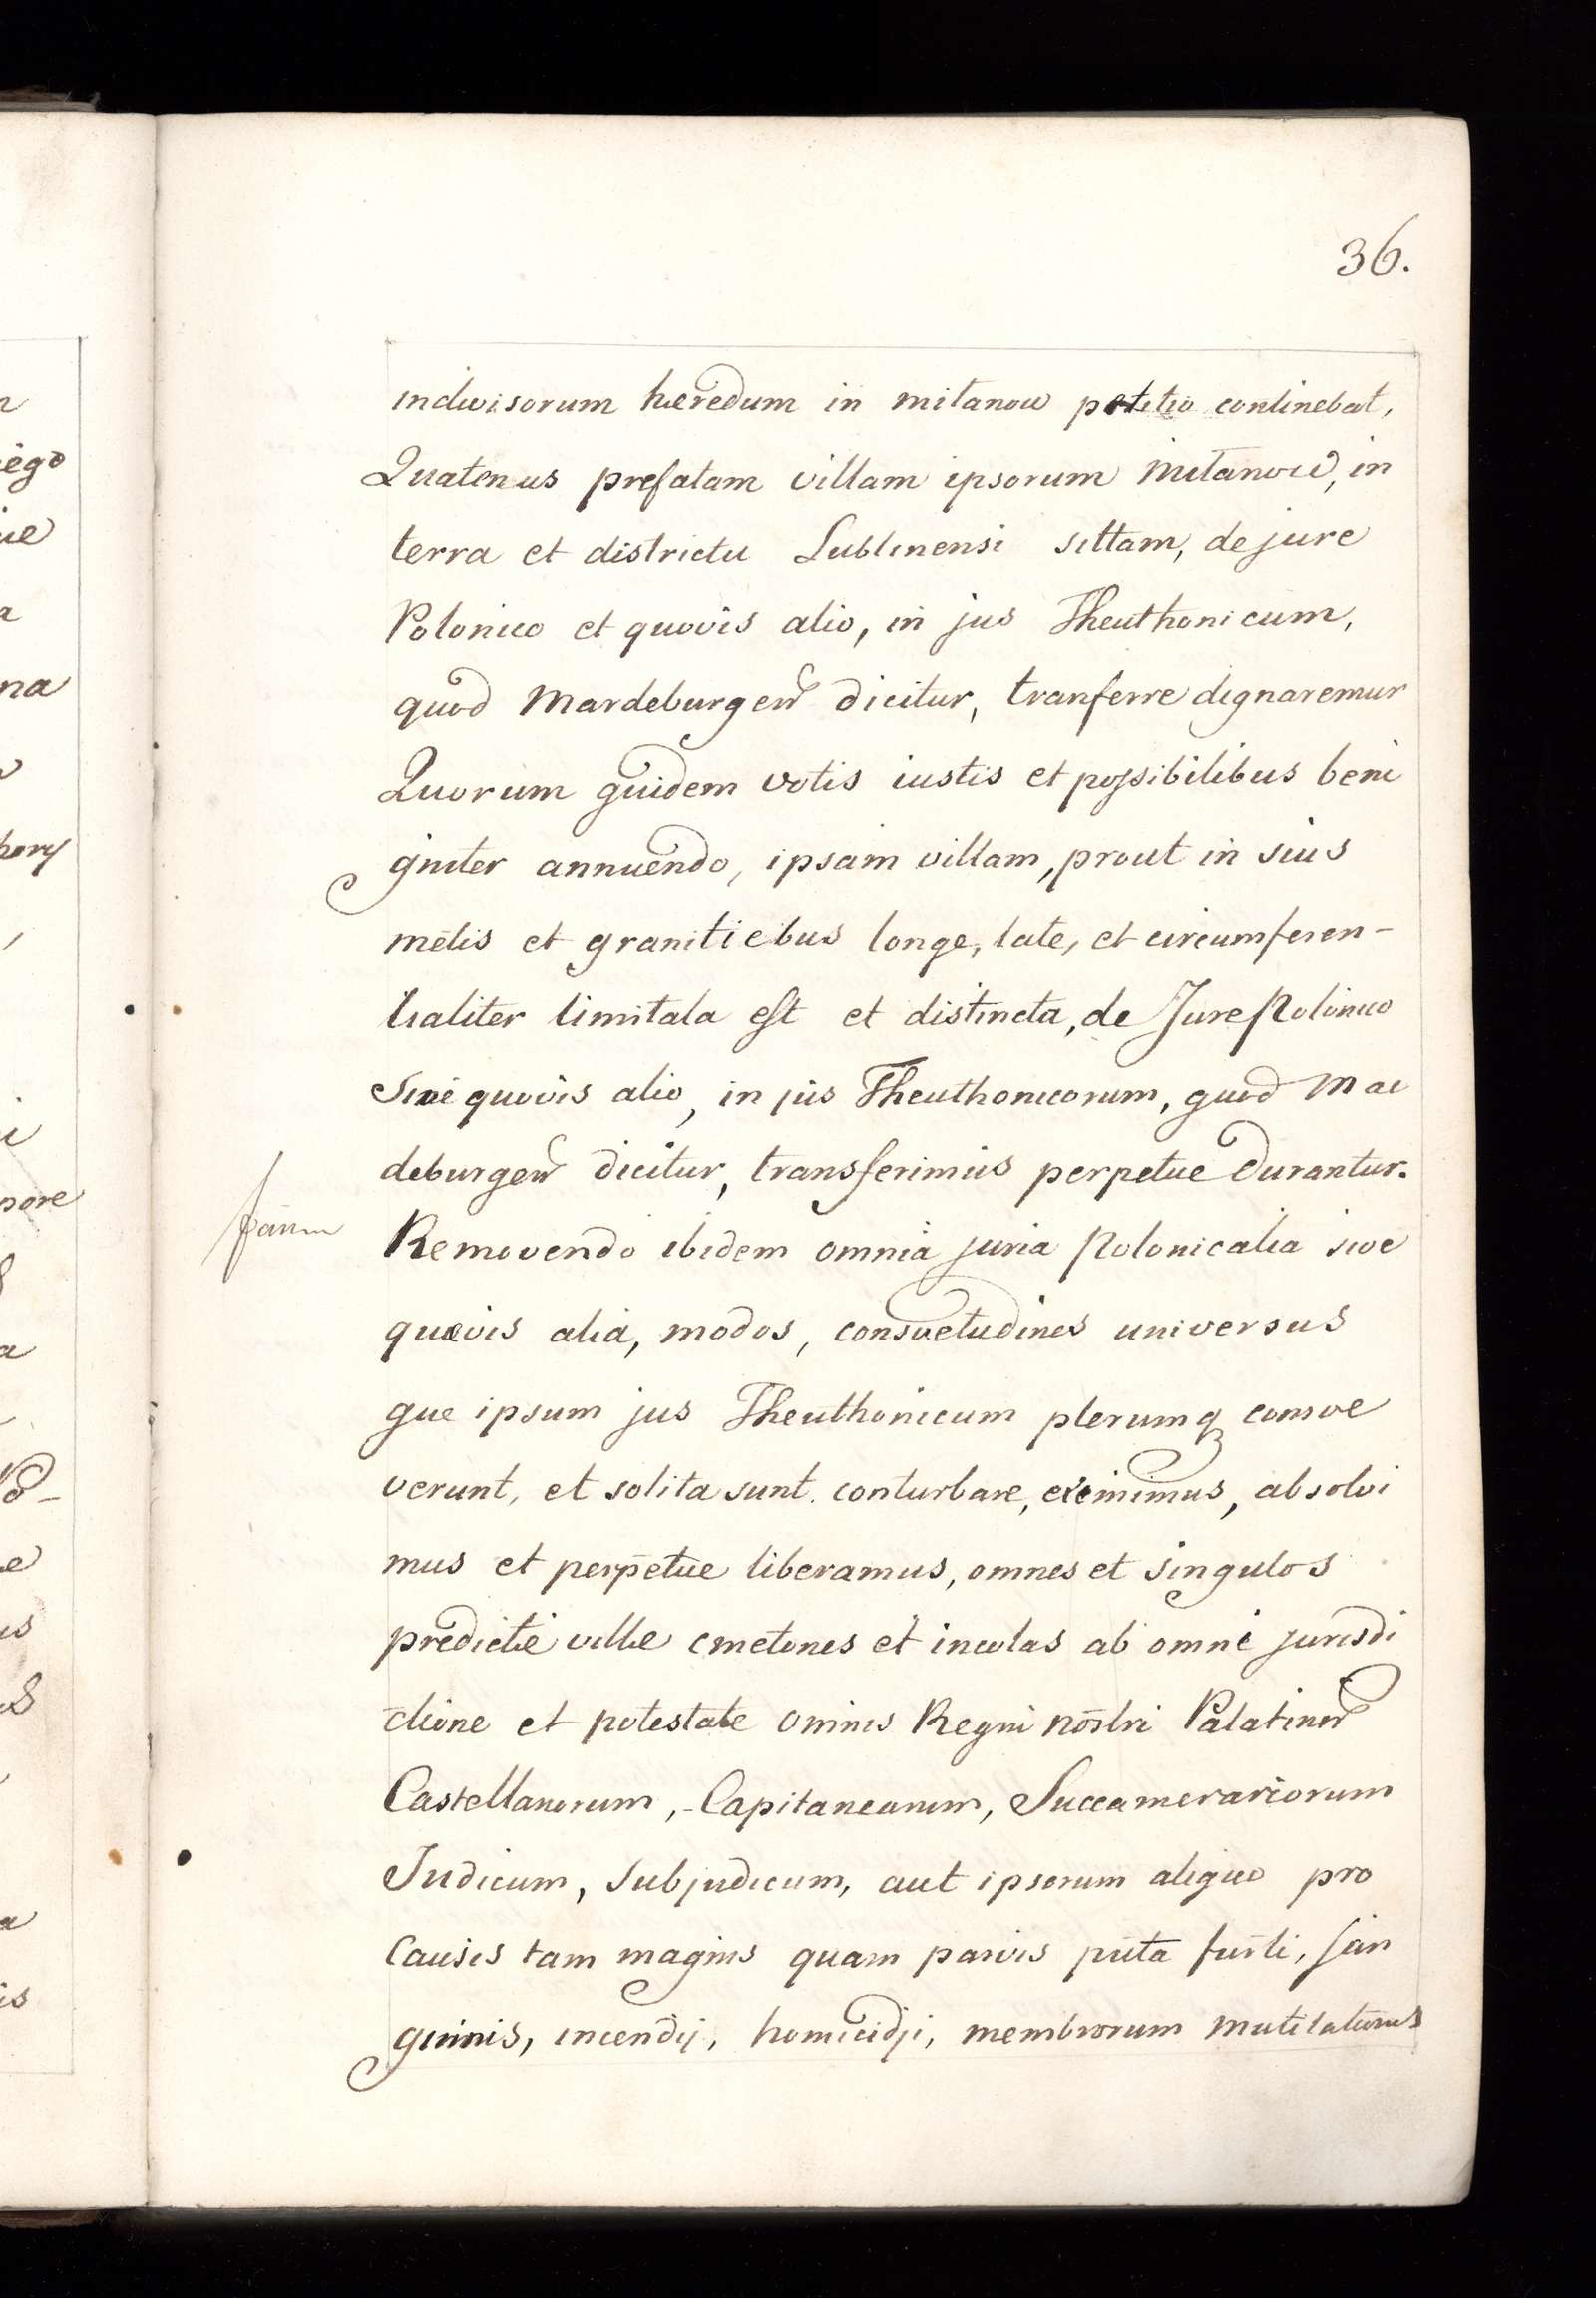 36.
indivisorum heredum in mitanow petitio continebat,
Quatenus prefatam villam ipsorum Mitanow, in
terra et districtu Lublinensi sittam, de jure
Polonico et quovis alio, in jus Theuthonicum,
quod Mardeburgen dicitur, tranferre dignaremur
Quorum quidem votis iustis et possibilibus beni
gniter annuendo, ipsam villam, prout in suis
metis et granitiebus longe, late, et circumferen-
tialiter limitata est et distincta, de Jure Polonico
Sive quovis alio, in jus Theuthonicorum, quod Mae
deburgen dicitur, transferimus perpetue durantur.
Removendo ibidem omnia juria Polonicalia sive
quævis alia, modos, consvetudines universus
que ipsum jus Theuthonicum plerumq consve
verunt, et solita sunt conturbare, eximimus, absolvi
mus et perpetue liberamus, omnes et singulos
predicte ville cmetones et incolas ab omni jurisdi
ctione et potestate omnis Regni nostri Palatinor
Castellanorum, Capitaneorum, Succamerariorum
Judicum, Subjudicum, aut ipsorum aliquo pro
Causis tam magnis quam parvis puta furti, San
guinis, incendij, homicidji, membrorum mutilationis
ego
na
pore